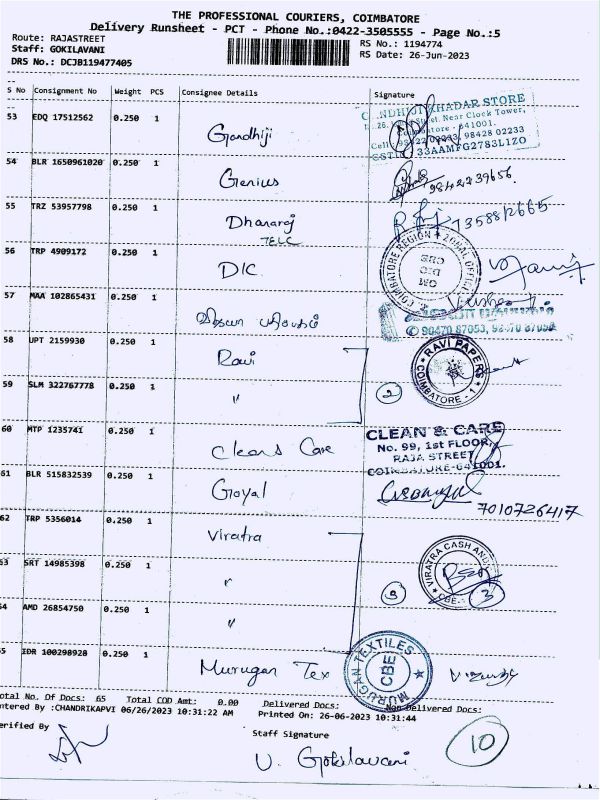 THE PROFESSIONAL COURIERS, COIMBATORE
Delivery Runsheet - PCT - Phone No.:0422-3505555 - Page No.:5
Route: RAJASTREET
RS No.: 1194774
Staff: GOKILAVANI
RS Date: 26-Jun-2023
DRS No.: DCJB119477405
S No Consignment No Weight PCS Consignee Details Signature
53 EDQ 17512562 0.250 1 Gandhiji
KHADAR STORE
Street. Near Clock Tower,
Coimbatore - 641001.
98428 02233
33AAMFG2783L1ZO
54 BLR 1650961020 0.250 1 Genius
55 TRZ 53957798 0.250 1 Dhanaraj
TELC
56 TRP 4909172 0.250 1 DIC
COIMBATORE REGION ★ ZONAL OFFICE
GM
DIC
CBE
57 MAA 102865431 0.250 1
90470 87053,
58 UPT 2159930 0.250 1 Ravi
RAVI PAPERS
COIMBATORE - 1
59 SLM 322767778 0.250 1 "
2
60 MTP 1235741 0.250 1 Clean & Care
CLEAN & CARE
No. 99, 1st FLOOR,
RAJA STREET
COIMBATORE-641001.
61 BLR 515832539 0.250 1 Goyal
7010726417
62 TRP 5356014 0.250 1 Viratra
VIRATRA CASH AND
63 SRT 14985398 0.250 1 "
3
64 AMD 26854750 0.250 1 "
65 IDR 100298928 0.250 1 Murugan Tex
MURUGAN TEXTILES
CBE
Total No. Of Docs: 65 Total COD Amt: 0.00 Delivered Docs: Non Delivered Docs:
Entered By :CHANDRIKAPVI 06/26/2023 10:31:22 AM Printed On: 26-06-2023 10:31:44
Verified By
Staff Signature
V. Gokilavani
10